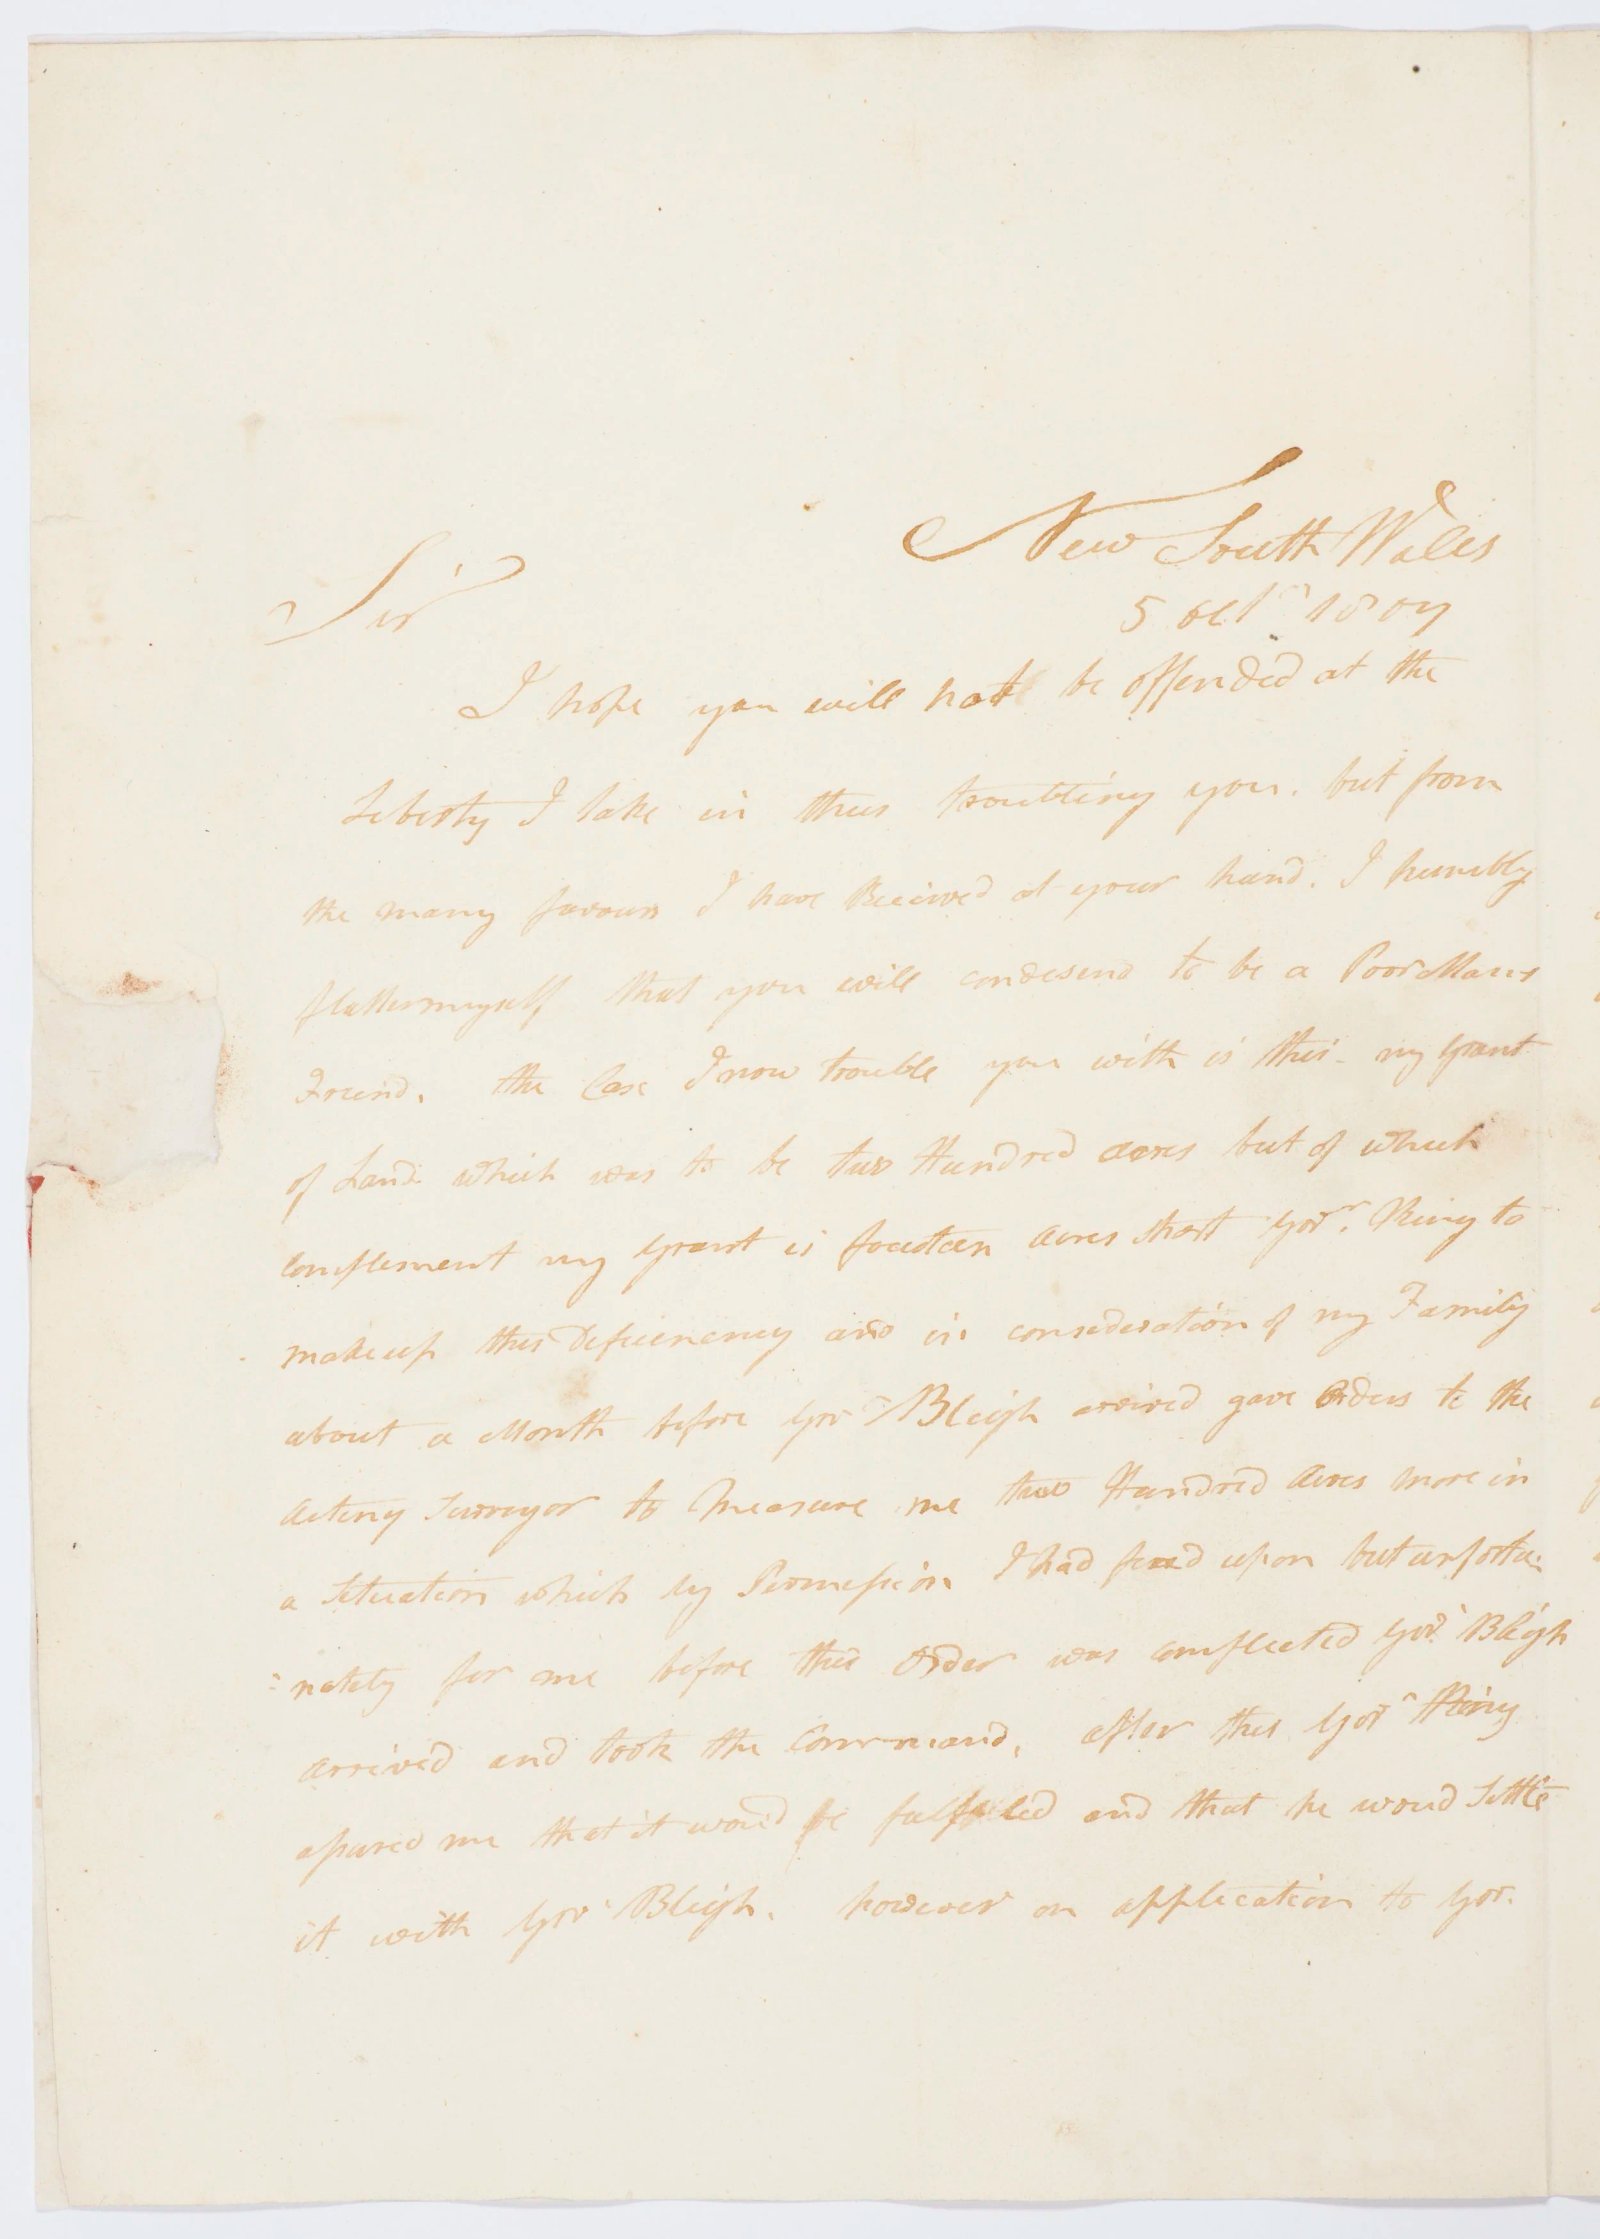 New South Wales
Sir
5 Octr 1807
I hope you will not be offended at the
Liberty I take in thus troubling you. but from
the many favours I have Received at your hand. I humbly
flatter myself that you will condesend to be a Poor Mans
Friend. the Case I now trouble you with is this - my Grant
of Land which was to be two Hundred acres but of which
complement my Grant is fourteen acres short Govr. King to
make up this Deficienency and in consideration of my Family
about a Month before Govr Bleigh arrived gave Orders to the
Acting Surveyor to Measure me two Hundred Acres more in
a Situation which by Permission I had fixed upon but unfortu:
:nately for me before this Order was compleeted Govr. Bleigh
arrived and took the Command. after this Govr King
assured me that it would be fulfilled and that he woud Settle
it with Govr Bleigh. however on application to Gov.